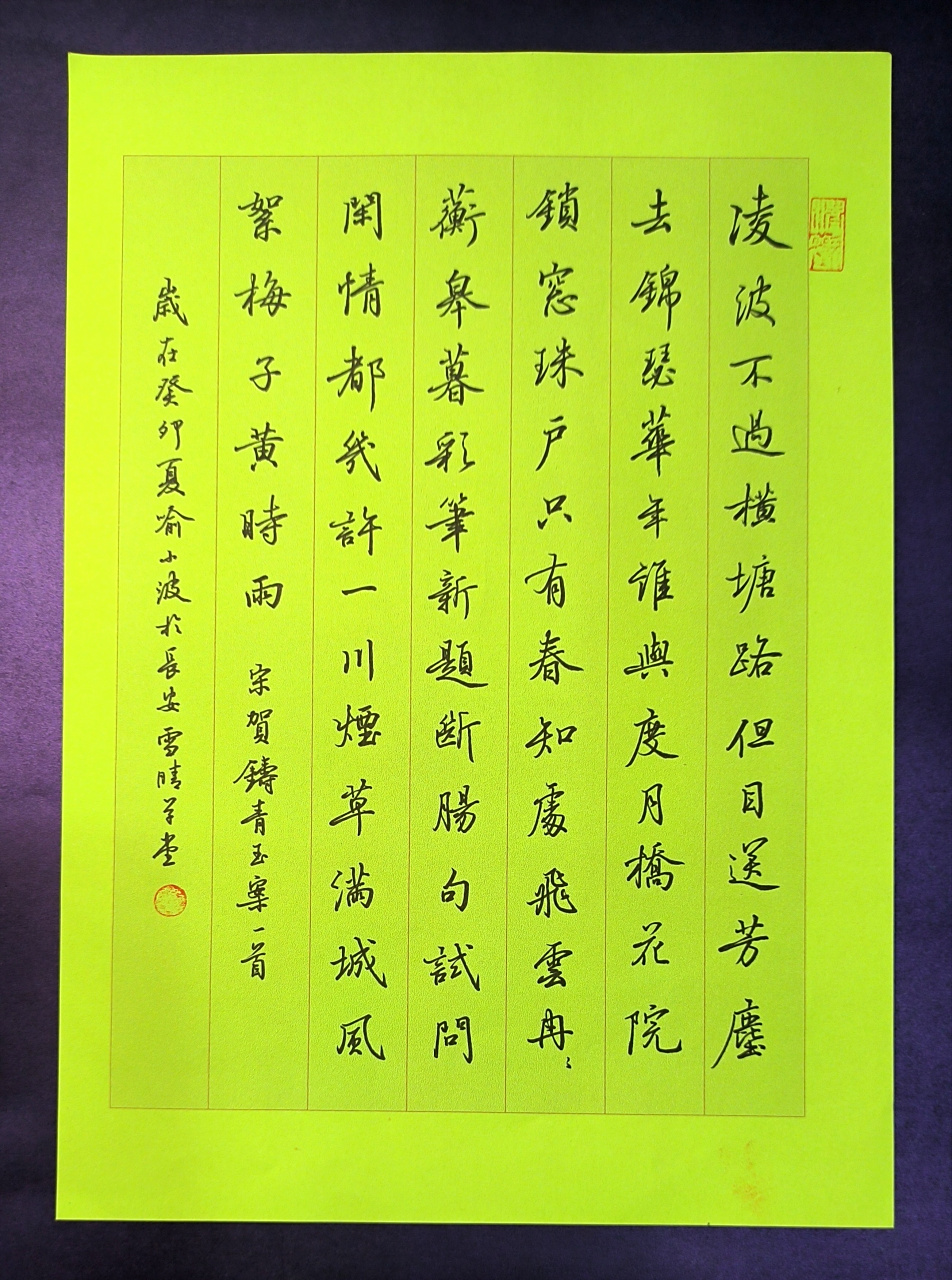 凌波不過橫塘路但目送芳塵
去錦瑟華年誰與度月橋花院
鎖窓珠户只有春知處飛雲冉〻
蘅皋暮彩筆新題斷腸句試問
閑情都幾許一川煙草滿城風
絮梅子黃時雨 宋賀鑄青玉案一首
歲在癸卯夏喻小波於長安雪晴草堂